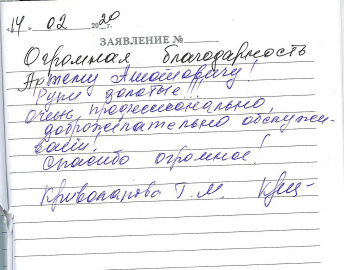 14. 02 2020г.
ЗАЯВЛЕНИЕ №
Огромная благодарность
Артему Ашотовичу!
Руки золотые!!!
Очень профессионально,
доброжелательно обслужи-
вает!
Спасибо огромное!
Криволапова Т. М.